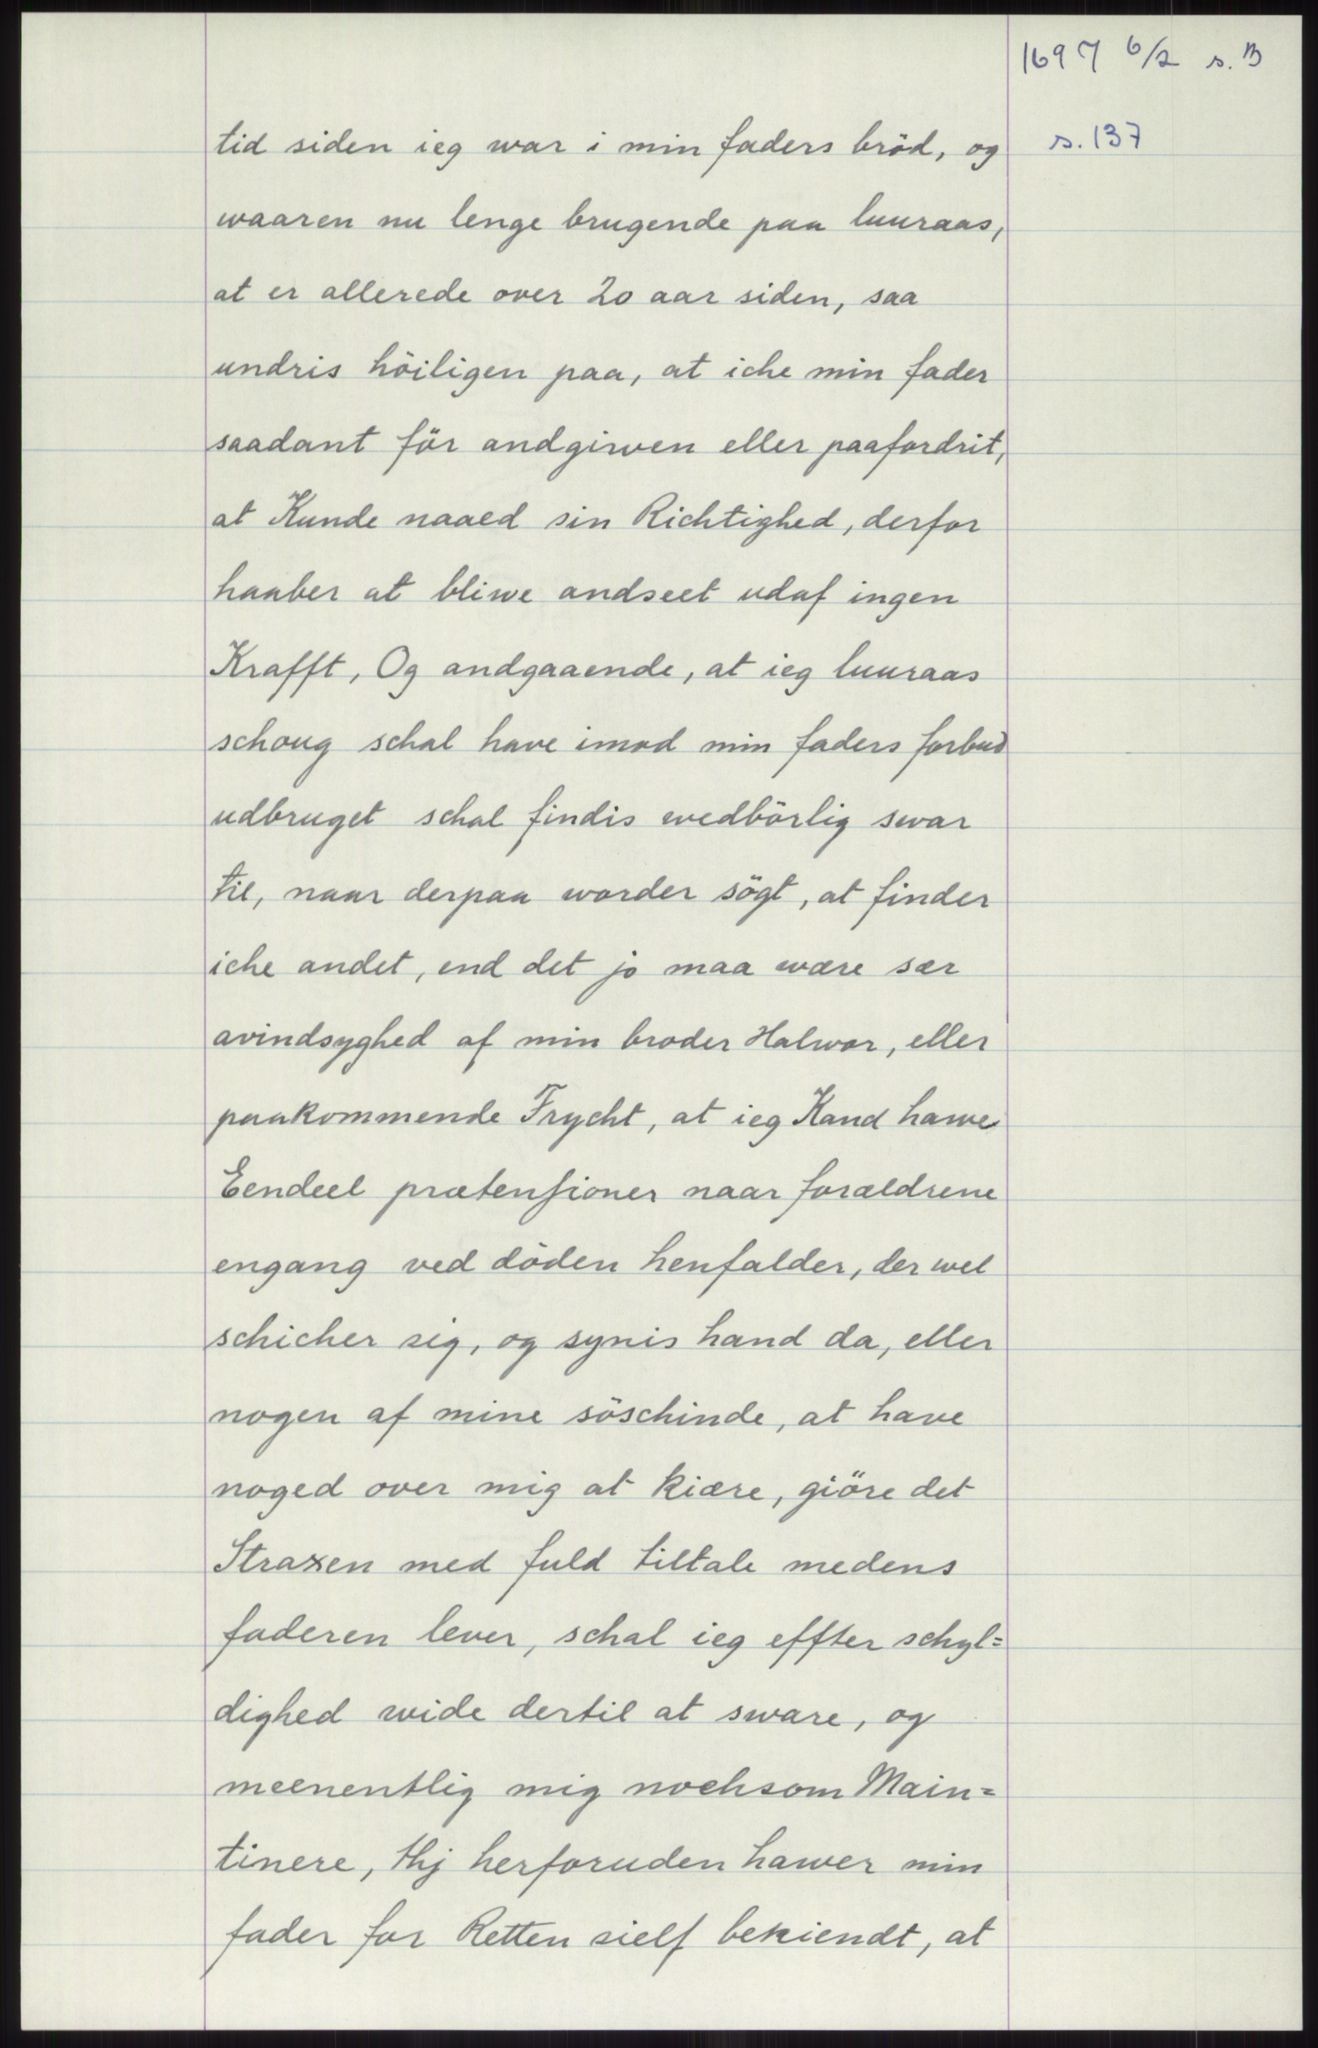 1697 6/2 s. B
s. 137
tid siden ieg war i min faders bröd, og
waaren nu lenge brugende paa luuraas,
at er allerede over 20 aar siden, saa
undris höiligen paa, at iche min fader
saadant för andgiwen eller paafordrit,
at Kunde naaed sin Richtighed, derfor
haaber at bliwe andseet udaf ingen
Krafft, Og andgaaende, at ieg luuraas
schoug schal have imod min faders forbud
udbruget schal findis wedbörlig swar
til, naar derpaa worder sögt, at finder
iche andet, end det jo maa være sær
avindsyghed af min broder Halwor, eller
paakommende Frycht, at ieg Kand hawe
Eendeel prætensioner naar forældrene
engang ved döden henfalder, der wel
schicher sig, og synis hand da, eller
nogen af mine söschinde, at have
noged over mig at kiære, giöre det
Straxen med fuld tiltale medens
faderen lever, schal ieg effter schyl=
dighed wide dertil at sware, og
meenentlig mig nochsom Main=
tinere, thj herforuden hawer min
fader for Retten sielf bekiendt, at